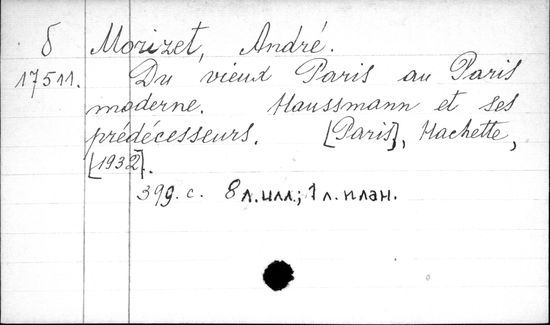 б Morizet, André.
17511. Du vieux Paris au Paris
moderne. Haussmann et ses
prédécesseurs. [Paris], Hachette,
[1932].
399. с. 8 л. илл.; 1 л. план.